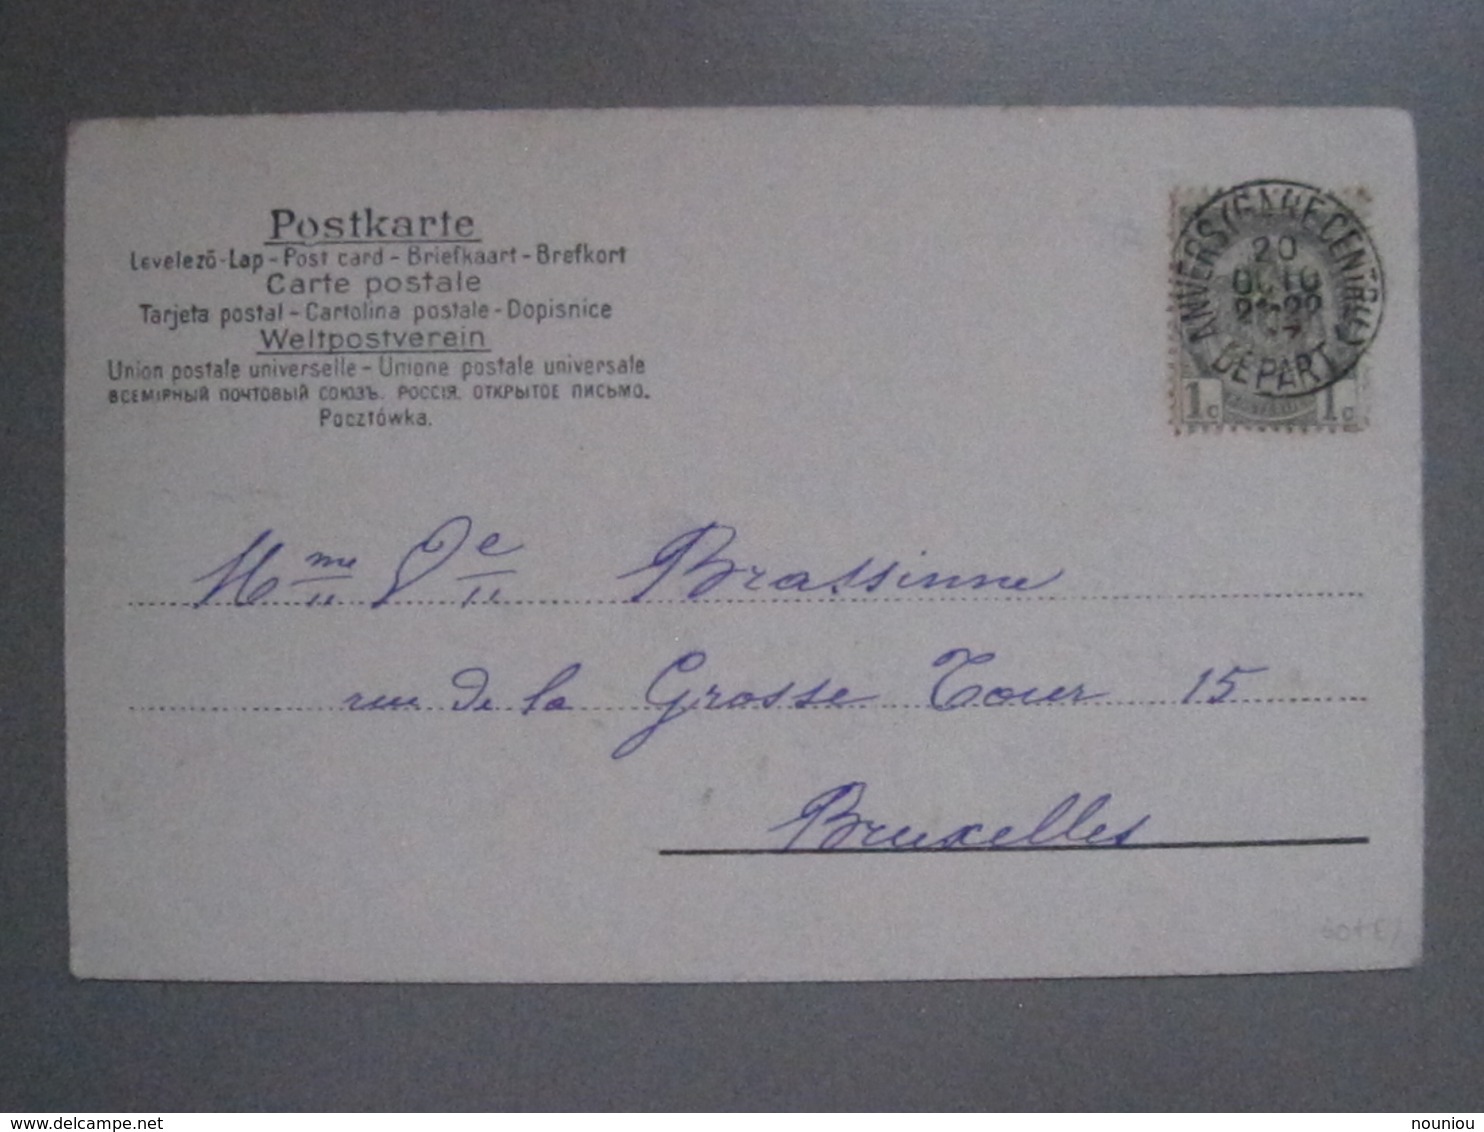 Postkarte
Levelezõ-Lap - Post card - Briefkaart - Brefkort
Carte postale
Tarjeta postal - Cartolina postale - Dopisnice
Weltpostverein
Union postale universelle - Unione postale universale
ВСЕМІРНЫЙ ПОЧТОВЫЙ СОЮЗЪ. РОССІЯ. ОТКРЫТОЕ ПИСЬМО.
Pocztówka.
ANVERS (GARE CENTRALE)
20
21-22
07
DÉPART
1c 1c
Mme Ve Brassinne
rue de la Grosse Tour 15
Bruxelles
nouniou